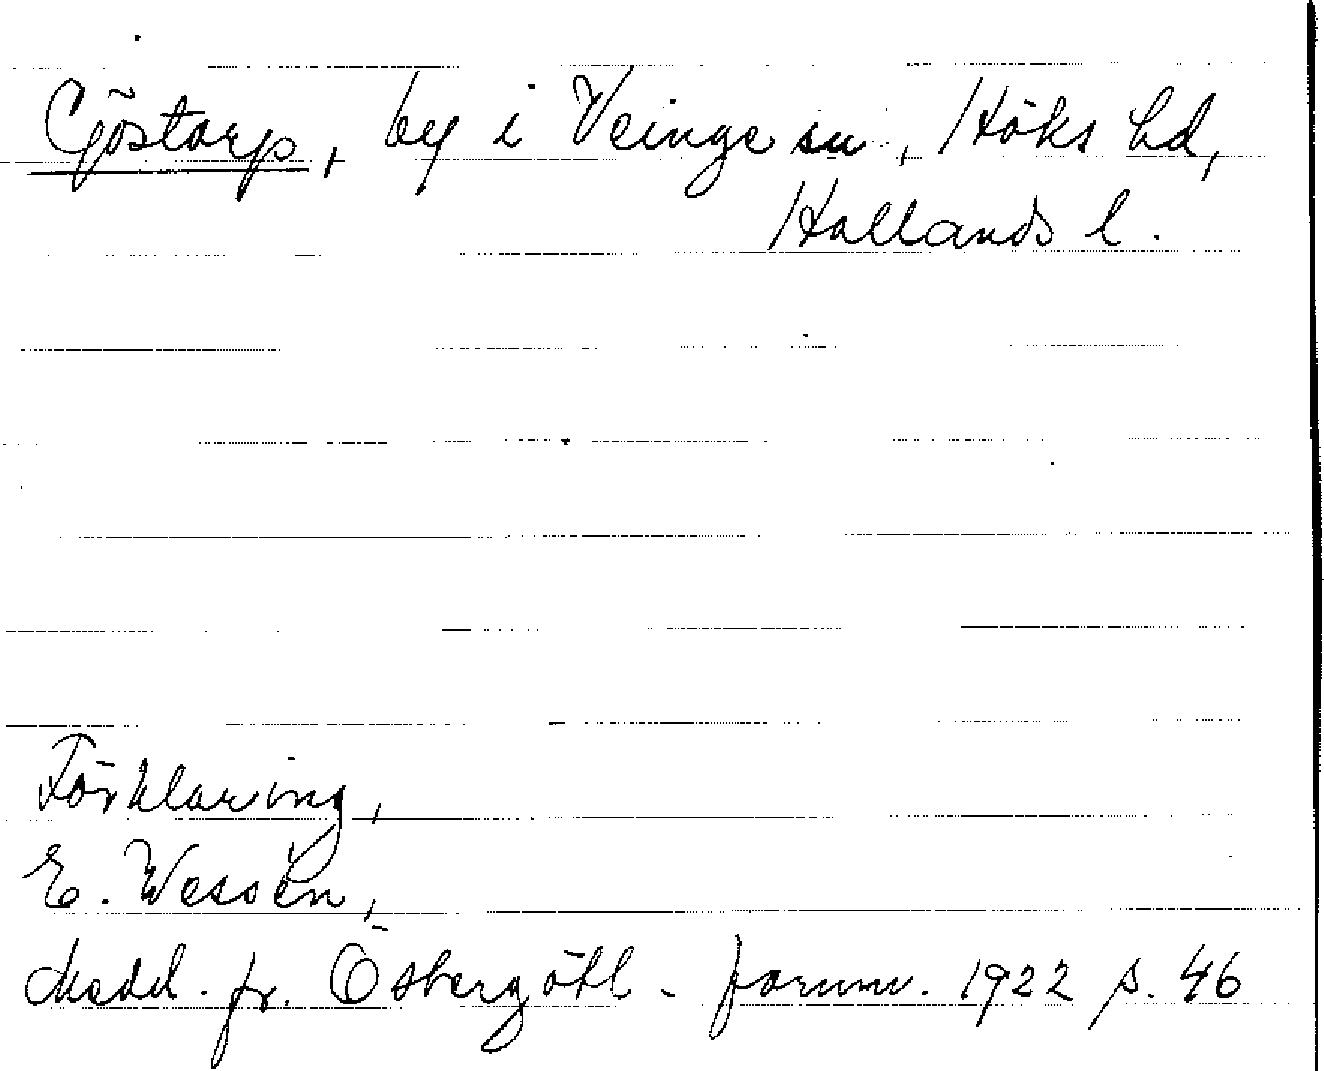 Göstorp, by i Veinge sn, Höks hd,
Hallands l.
Förklaring,
E. Wessén,
Medd. fr. Östergötl. fornm. 1922 s. 46